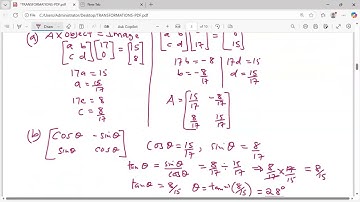 TRANSFORMATIONS-PDF.pdf
File
C:/Users/Administrator/Desktop/TRANSFORMATIONS-PDF.pdf
(a) A X Object = Image
[a b; c d] [17; 0] = [15; 8]
[a b; c d] [0; 17] = [-8; 15]
17a = 15
a = 15/17
17c = 8
c = 8/17
17b = -8
b = -8/17
17d = 15
d = 15/17
A = [15/17 -8/17; 8/17 15/17]
(b) [cosθ -sinθ; sinθ cosθ]
cosθ = 15/17, sinθ = 8/17
tanθ = sinθ/cosθ = 8/17 ÷ 15/17 ⇒ 8/17 × 17/15 = 8/15
tanθ = 8/15 θ = tan⁻¹(8/15) = 28°